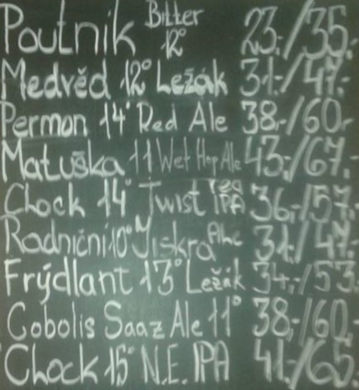 Poutník Bitter 12° 23,-/35,-
Medvěd 12° Ležák 31,-/47,-
Permon 14° Red Ale 38,-/60,-
Matuška 11 Wet Hop Ale 43,-/67,-
Clock 14° Twist IPA 36,-/57,-
Radniční 10° Jiskra Ale 31,-/47,-
Frýdlant 13° Ležák 34,-/53,-
Cobolis Saaz Ale 11° 38,-/60,-
Clock 15° N.E. IPA 41,-/65